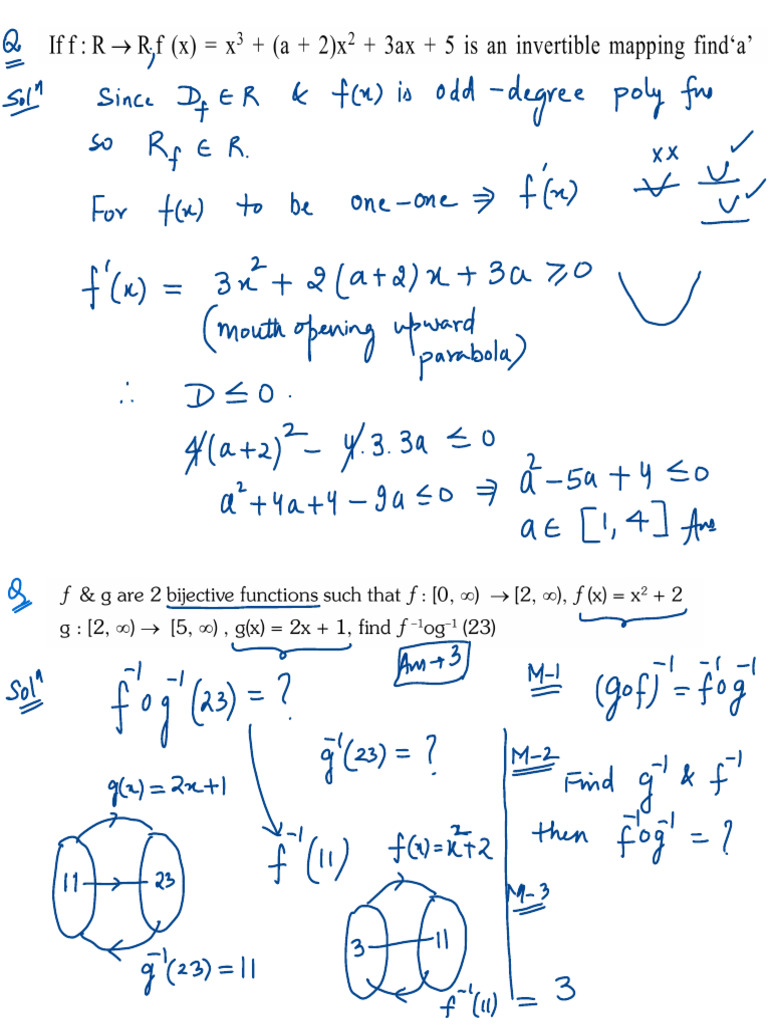 Q If f : R → R, f (x) = x³ + (a + 2)x² + 3ax + 5 is an invertible mapping find‘a’
Solⁿ Since D_f ∈ R & f(x) is odd-degree poly fⁿ
so R_f ∈ R.
For f(x) to be one-one ⇒ f'(x)
xx
f'(x) = 3x² + 2(a+2)x + 3a ≥ 0
(mouth opening upward
parabola)
∴ D ≤ 0.
4(a+2)² - 4.3.3a ≤ 0
a² + 4a + 4 - 9a ≤ 0 ⇒ a² - 5a + 4 ≤ 0
a ∈ [1, 4] Ans
Q f & g are 2 bijective functions such that f : [0, ∞) → [2, ∞), f (x) = x² + 2
g : [2, ∞) → [5, ∞) , g(x) = 2x + 1, find f ⁻¹og⁻¹ (23)
Ans → 3
Solⁿ f⁻¹og⁻¹(23) = ?
g⁻¹(23) = ?
g(x) = 2x+1
11 → 23
g⁻¹(23) = 11
f⁻¹(11)
f(x) = x²+2
3 11
f⁻¹(11) = 3
M-1 (gof)⁻¹ = f⁻¹og⁻¹
M-2 Find g⁻¹ & f⁻¹
then f⁻¹og⁻¹ = ?
M-3